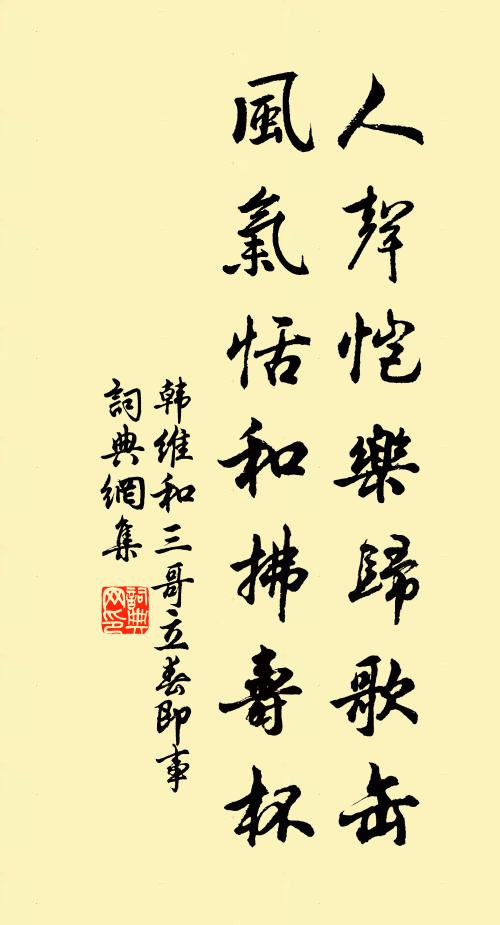 人聲愷樂歸歌缶
風氣恬和拂壽杯
韩維和三哥立春即事
詞典網集
詞典网印